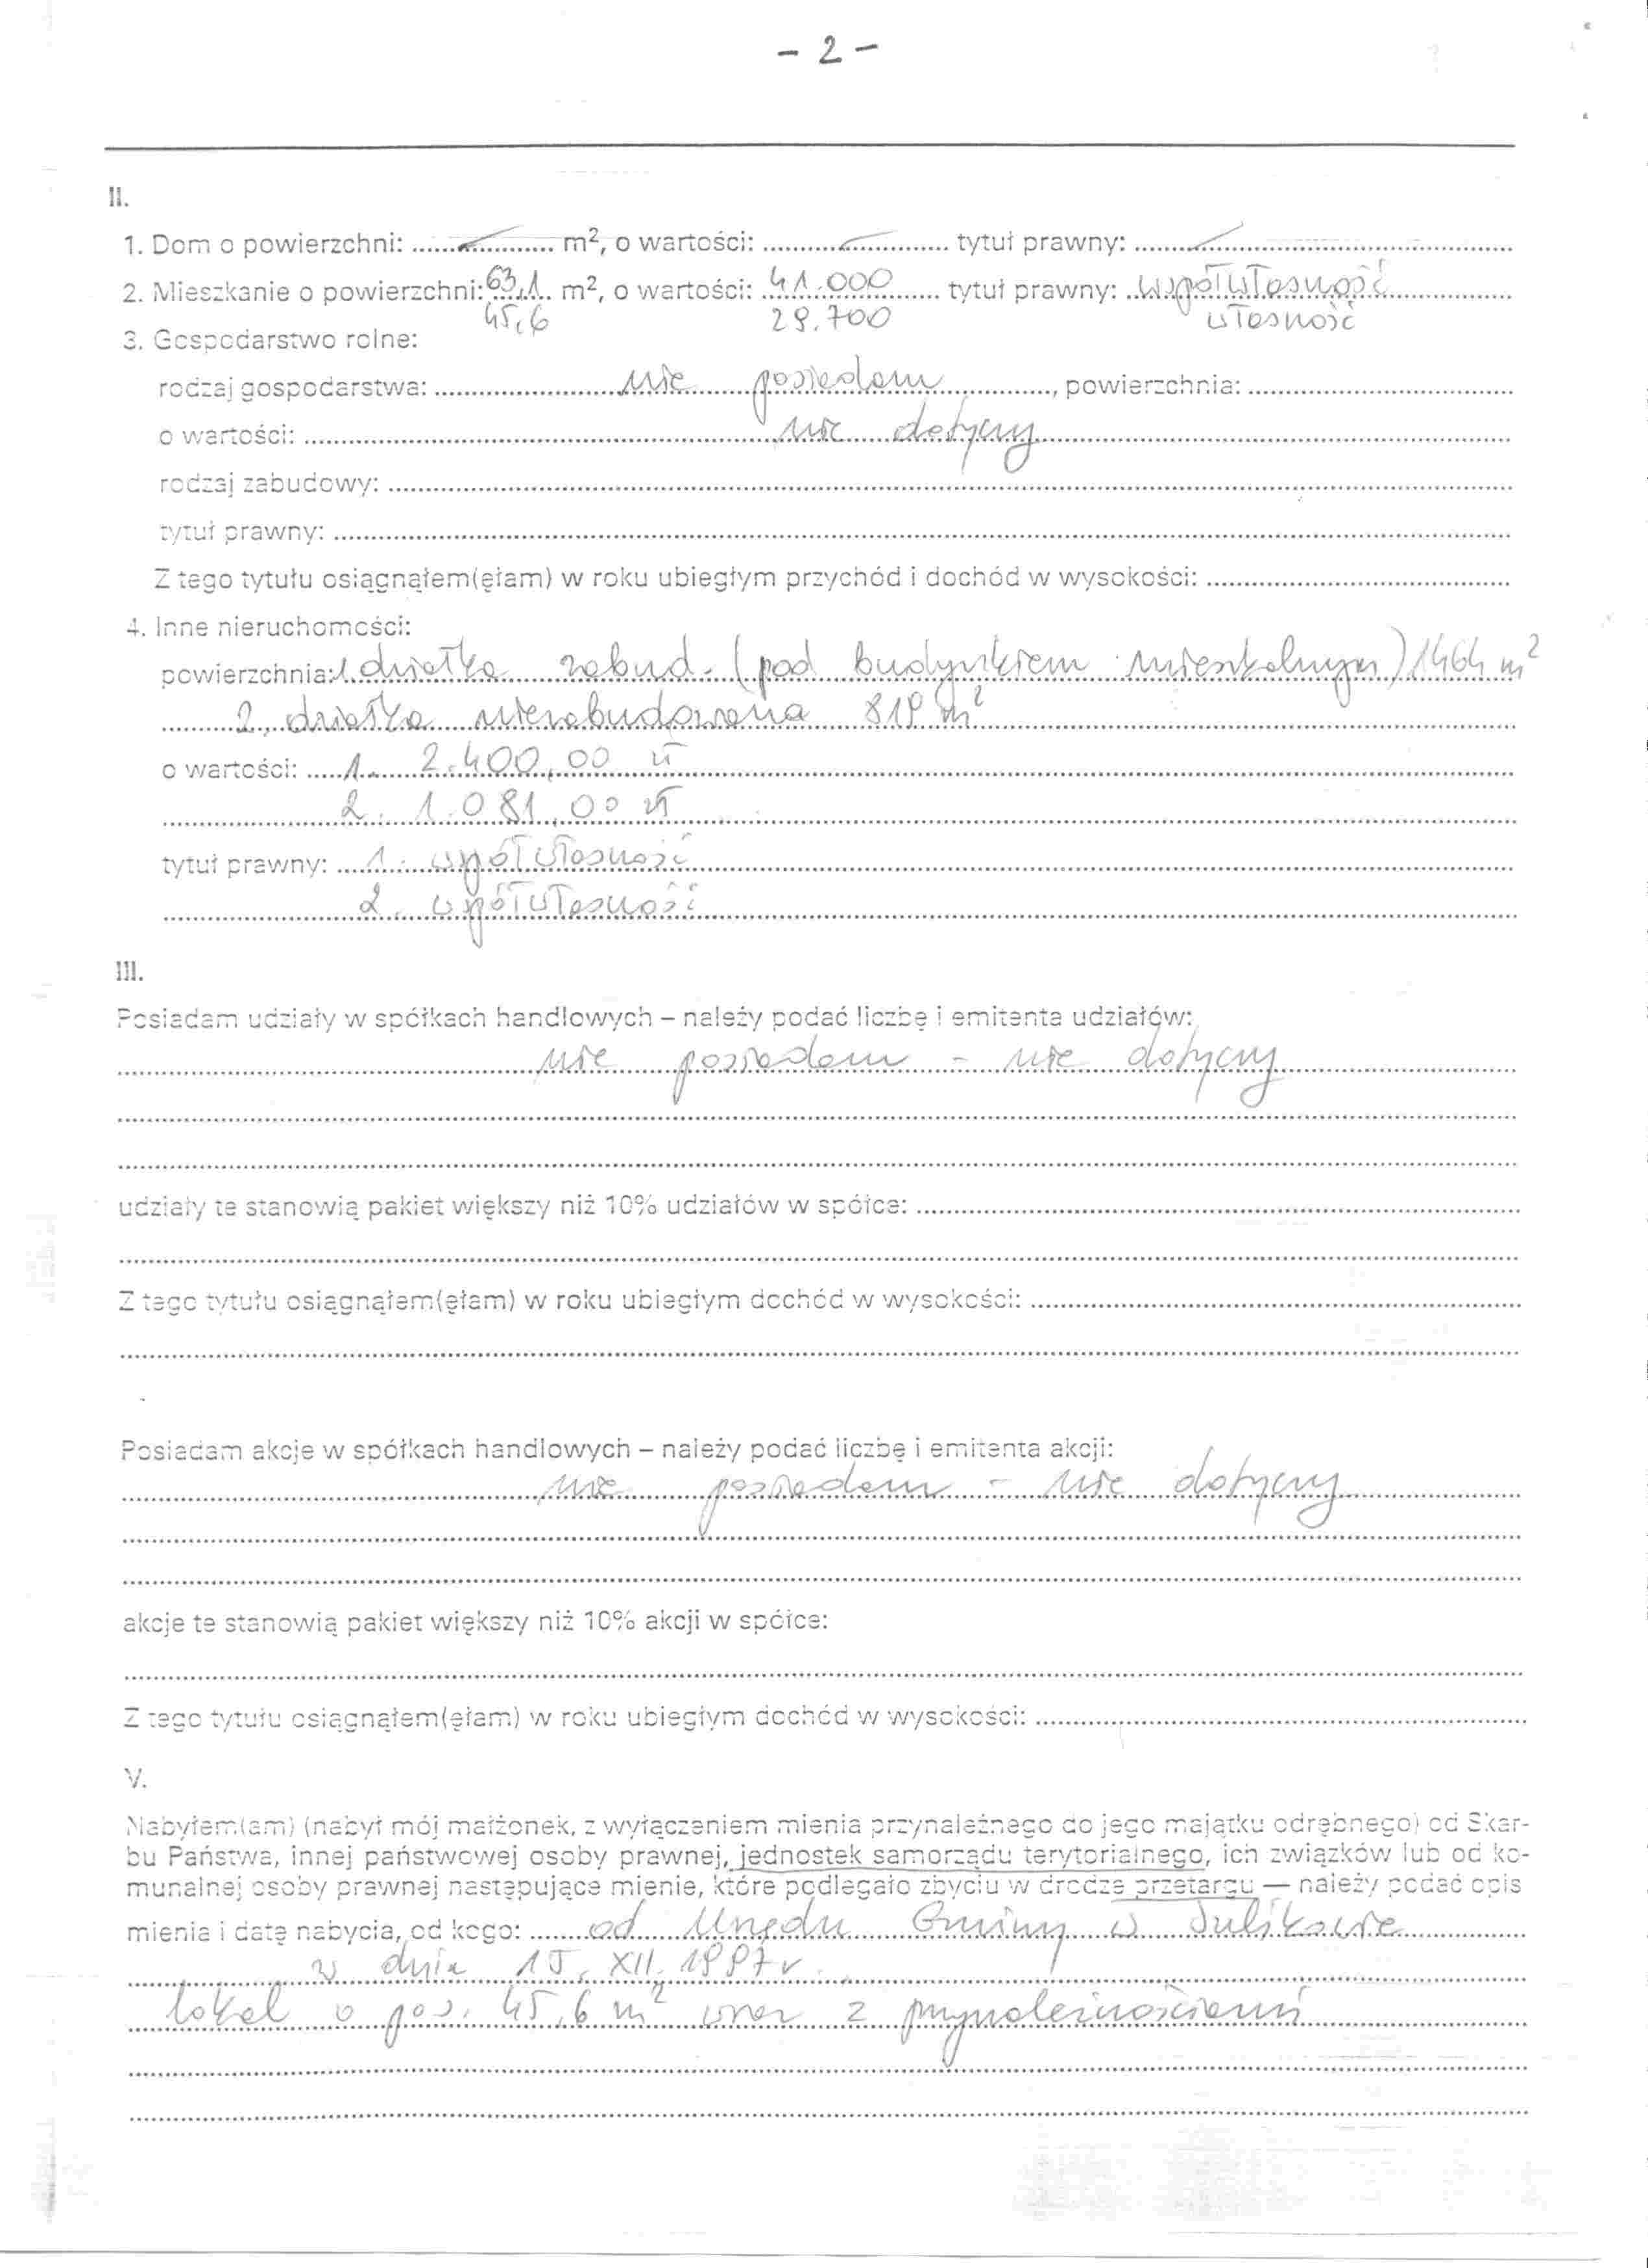 - 2 -
II.
1. Dom o powierzchni: ........—........ m², o wartości: ........—........ tytuł prawny: ........—........
2. Mieszkanie o powierzchni: 63,1 m², o wartości: 41.000 tytuł prawny: współwłasność
45,6 29.700 własność
3. Gospodarstwo rolne:
rodzaj gospodarstwa: nie posiadam, powierzchnia:
o wartości: nie dotyczy
rodzaj zabudowy:
tytuł prawny:
Z tego tytułu osiągnąłem(ęłam) w roku ubiegłym przychód i dochód w wysokości:
4. Inne nieruchomości:
powierzchnia: 1. działka zabud. (pod budynkiem mieszkalnym) 1464 m²
2. działka niezabudowana 819 m²
o wartości: 1. 2.400,00 zł
2. 1.081,00 zł
tytuł prawny: 1. współwłasność
2. współwłasność
III.
Posiadam udziały w spółkach handlowych – należy podać liczbę i emitenta udziałów:
nie posiadam - nie dotyczy
udziały te stanowią pakiet większy niż 10% udziałów w spółce:
Z tego tytułu osiągnąłem(ęłam) w roku ubiegłym dochód w wysokości:
Posiadam akcje w spółkach handlowych – należy podać liczbę i emitenta akcji:
nie posiadam - nie dotyczy
akcje te stanowią pakiet większy niż 10% akcji w spółce:
Z tego tytułu osiągnąłem(ęłam) w roku ubiegłym dochód w wysokości:
V.
Nabyłem(am) (nabył mój małżonek, z wyłączeniem mienia przynależnego do jego majątku odrębnego) od Skar-
bu Państwa, innej państwowej osoby prawnej, jednostek samorządu terytorialnego, ich związków lub od ko-
munalnej osoby prawnej następujące mienie, które podlegało zbyciu w drodze przetargu — należy podać opis
mienia i datę nabycia, od kogo: od Urzędu Gminy w Sulikowie
w dniu 15. XII. 1997 r.
lokal o pow. 45,6 m² wraz z przynależnościami